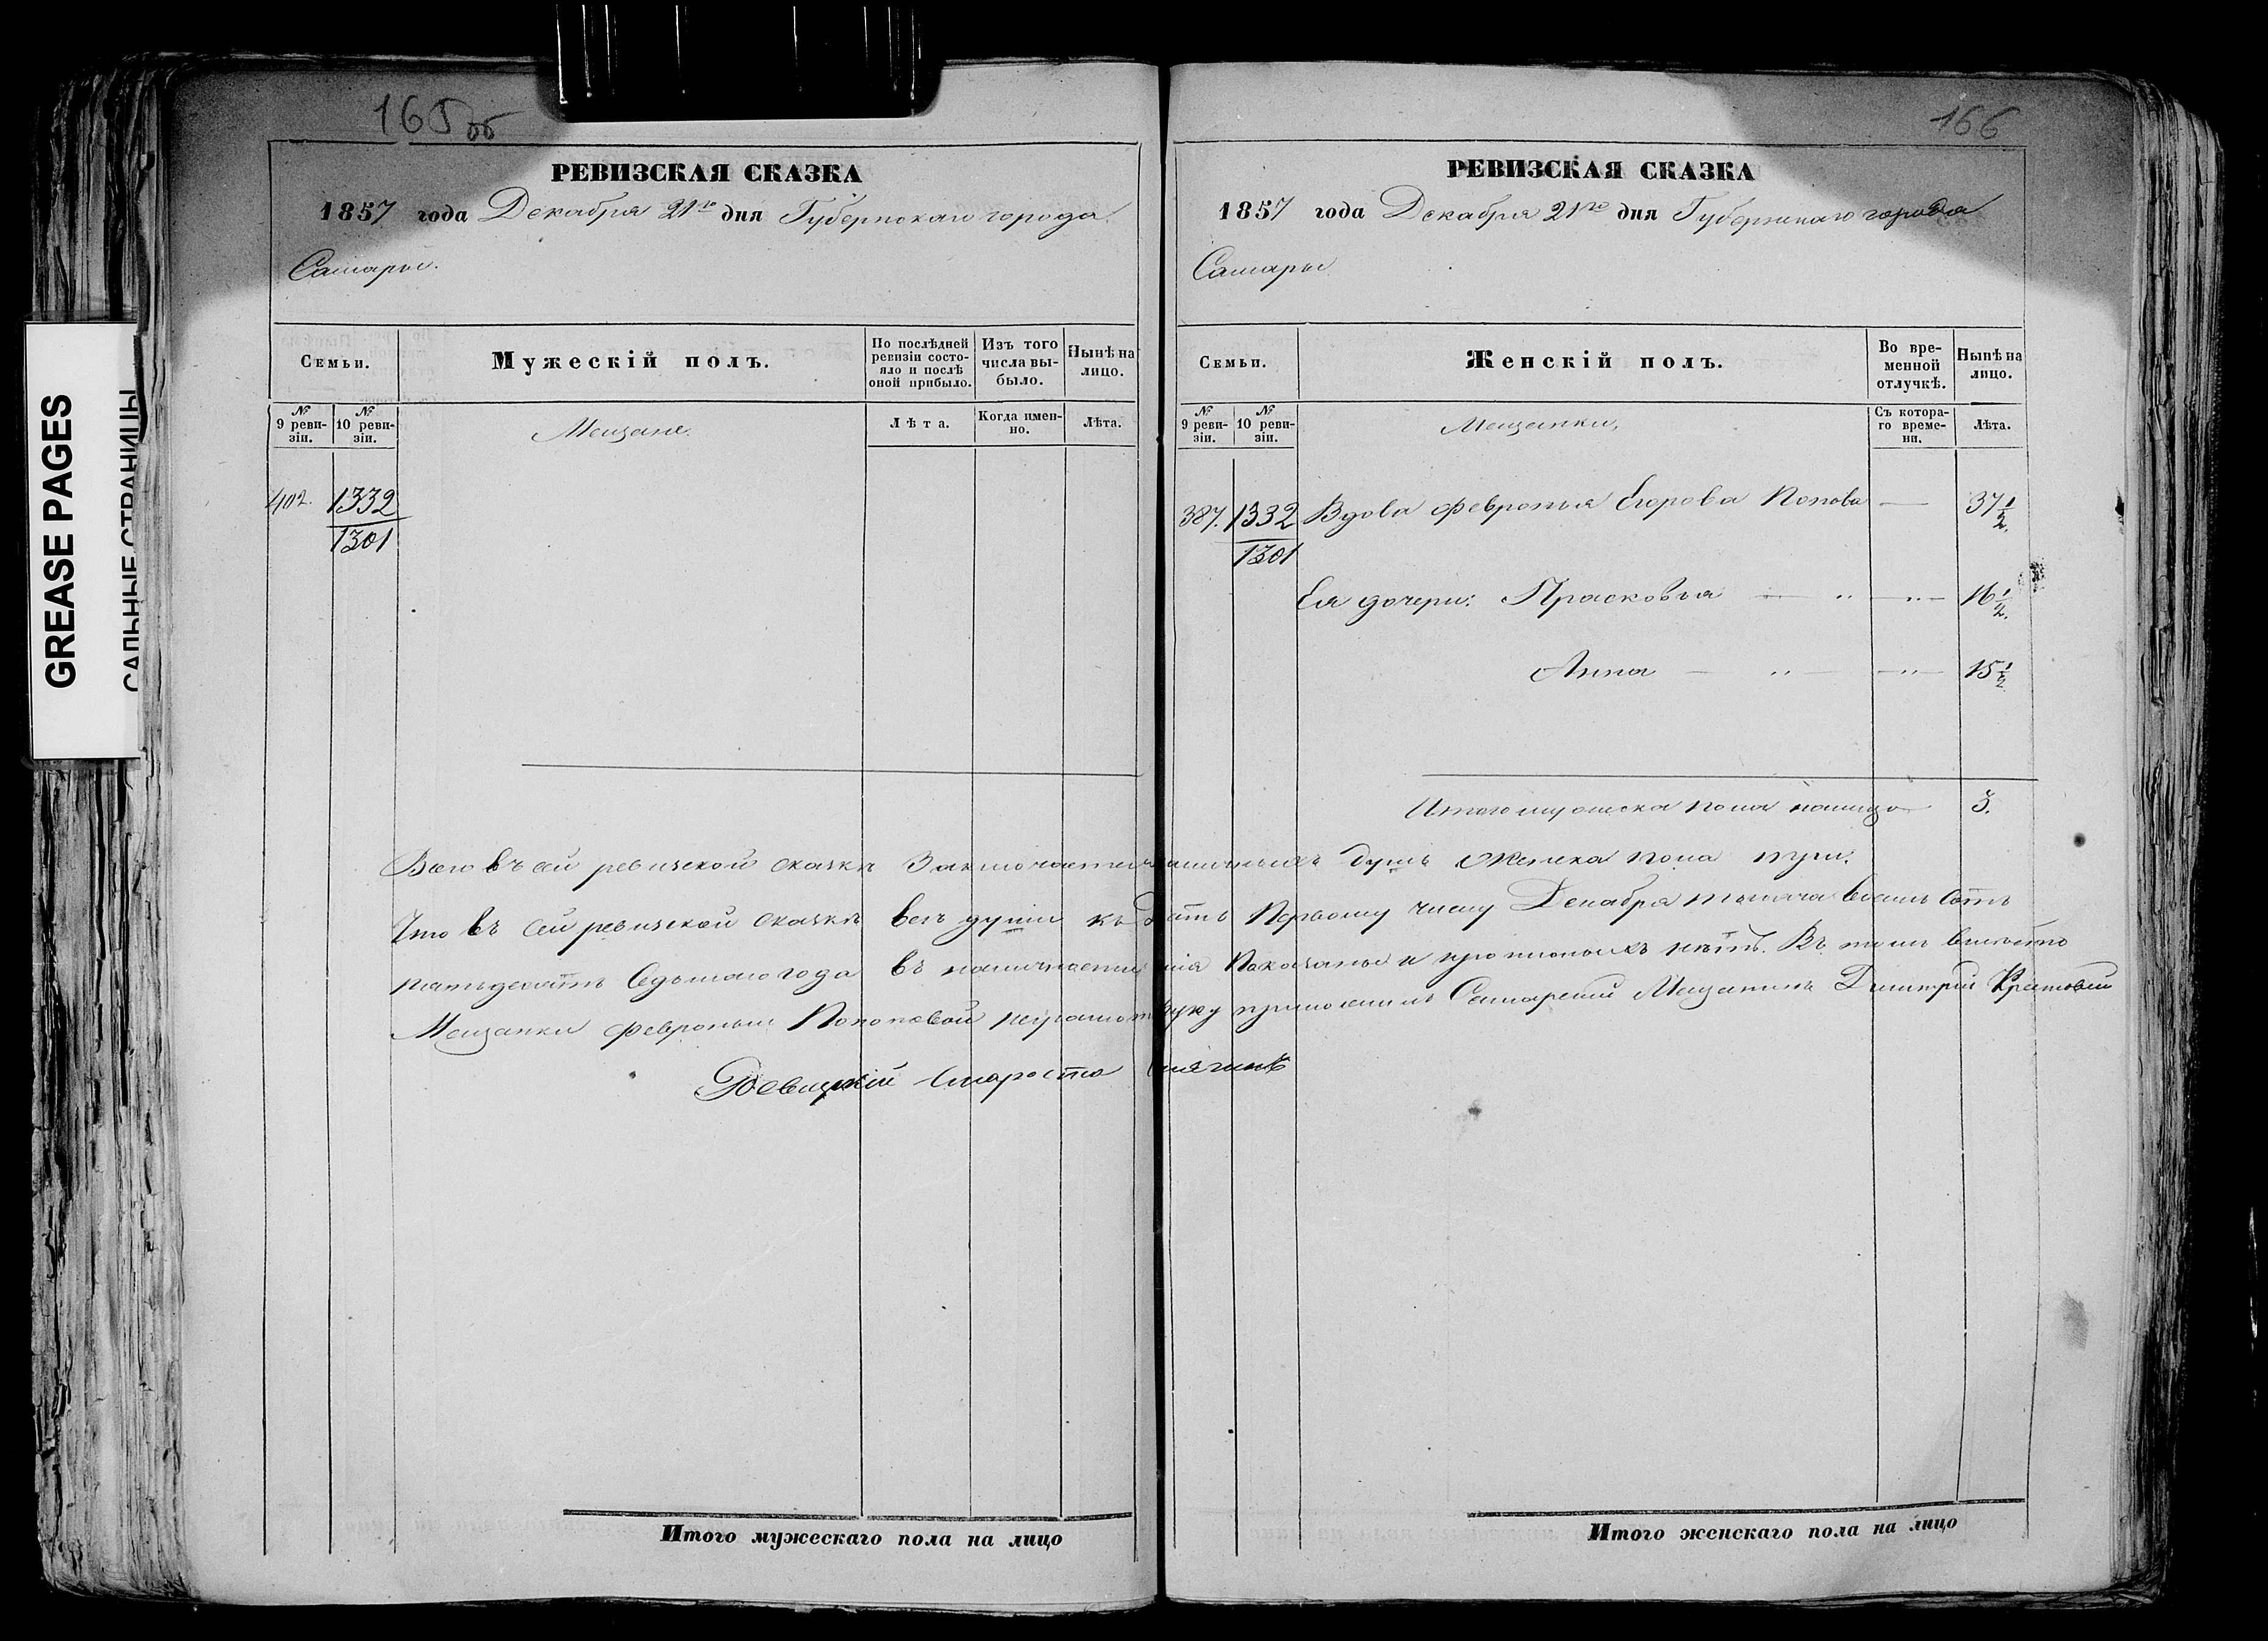 GREASE PAGES
САЛЬНЫЕ СТРАНИЦЫ
165 об
РЕВИЗСКАЯ СКАЗКА
1857 года Декабря 21го дня Губернскаго города
Самары.
Семьи.
Мужескій полъ.
По послѣдней ревизіи состояло и послѣ оной прибыло.
Изъ того числа выбыло.
Нынѣ на лицо.
№ 9 ревизіи.
№ 10 ревизіи.
Мещане.
Лѣта.
Когда именно.
Лѣта.
402. 1332
1301
166
РЕВИЗСКАЯ СКАЗКА
1857 года Декабря 21го дня Губернскаго города
Самары
Семьи.
Женскій полъ.
Во временной отлучкѣ.
Нынѣ на лицо.
№ 9 ревизіи.
№ 10 ревизіи.
Мещанки,
Съ котораго времени.
Лѣта.
387. 1332 Вдова Февронья Егорова Попова — 37 1/2.
1301
Ея дочери: Прасковья — " — " — 16 1/2.
Анна — " — " — 15 1/2
Итого женска пола налицо 3.
Всего въ сей ревизской сказкѣ Заключается наличныхъ душъ женска пола три.
Что въ сей ревизской сказкѣ всѣ души къ Первому числу Декабря тысяча восемь сотъ
пятьдесятъ Седьмаго года въ Показаны и прописныхъ нѣтъ. Въ томъ вмѣсто
Мещанки Февроньи руку приложилъ Самарскій Мещанинъ Дмитрій
Староста
Итого мужескаго пола на лицо
Итого женскаго пола на лицо